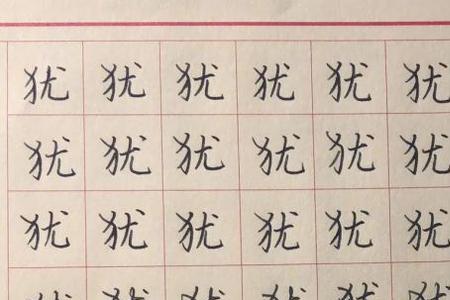 犹 犹 犹 犹 犹 犹
犹 犹 犹 犹 犹 犹
犹 犹 犹 犹 犹 犹